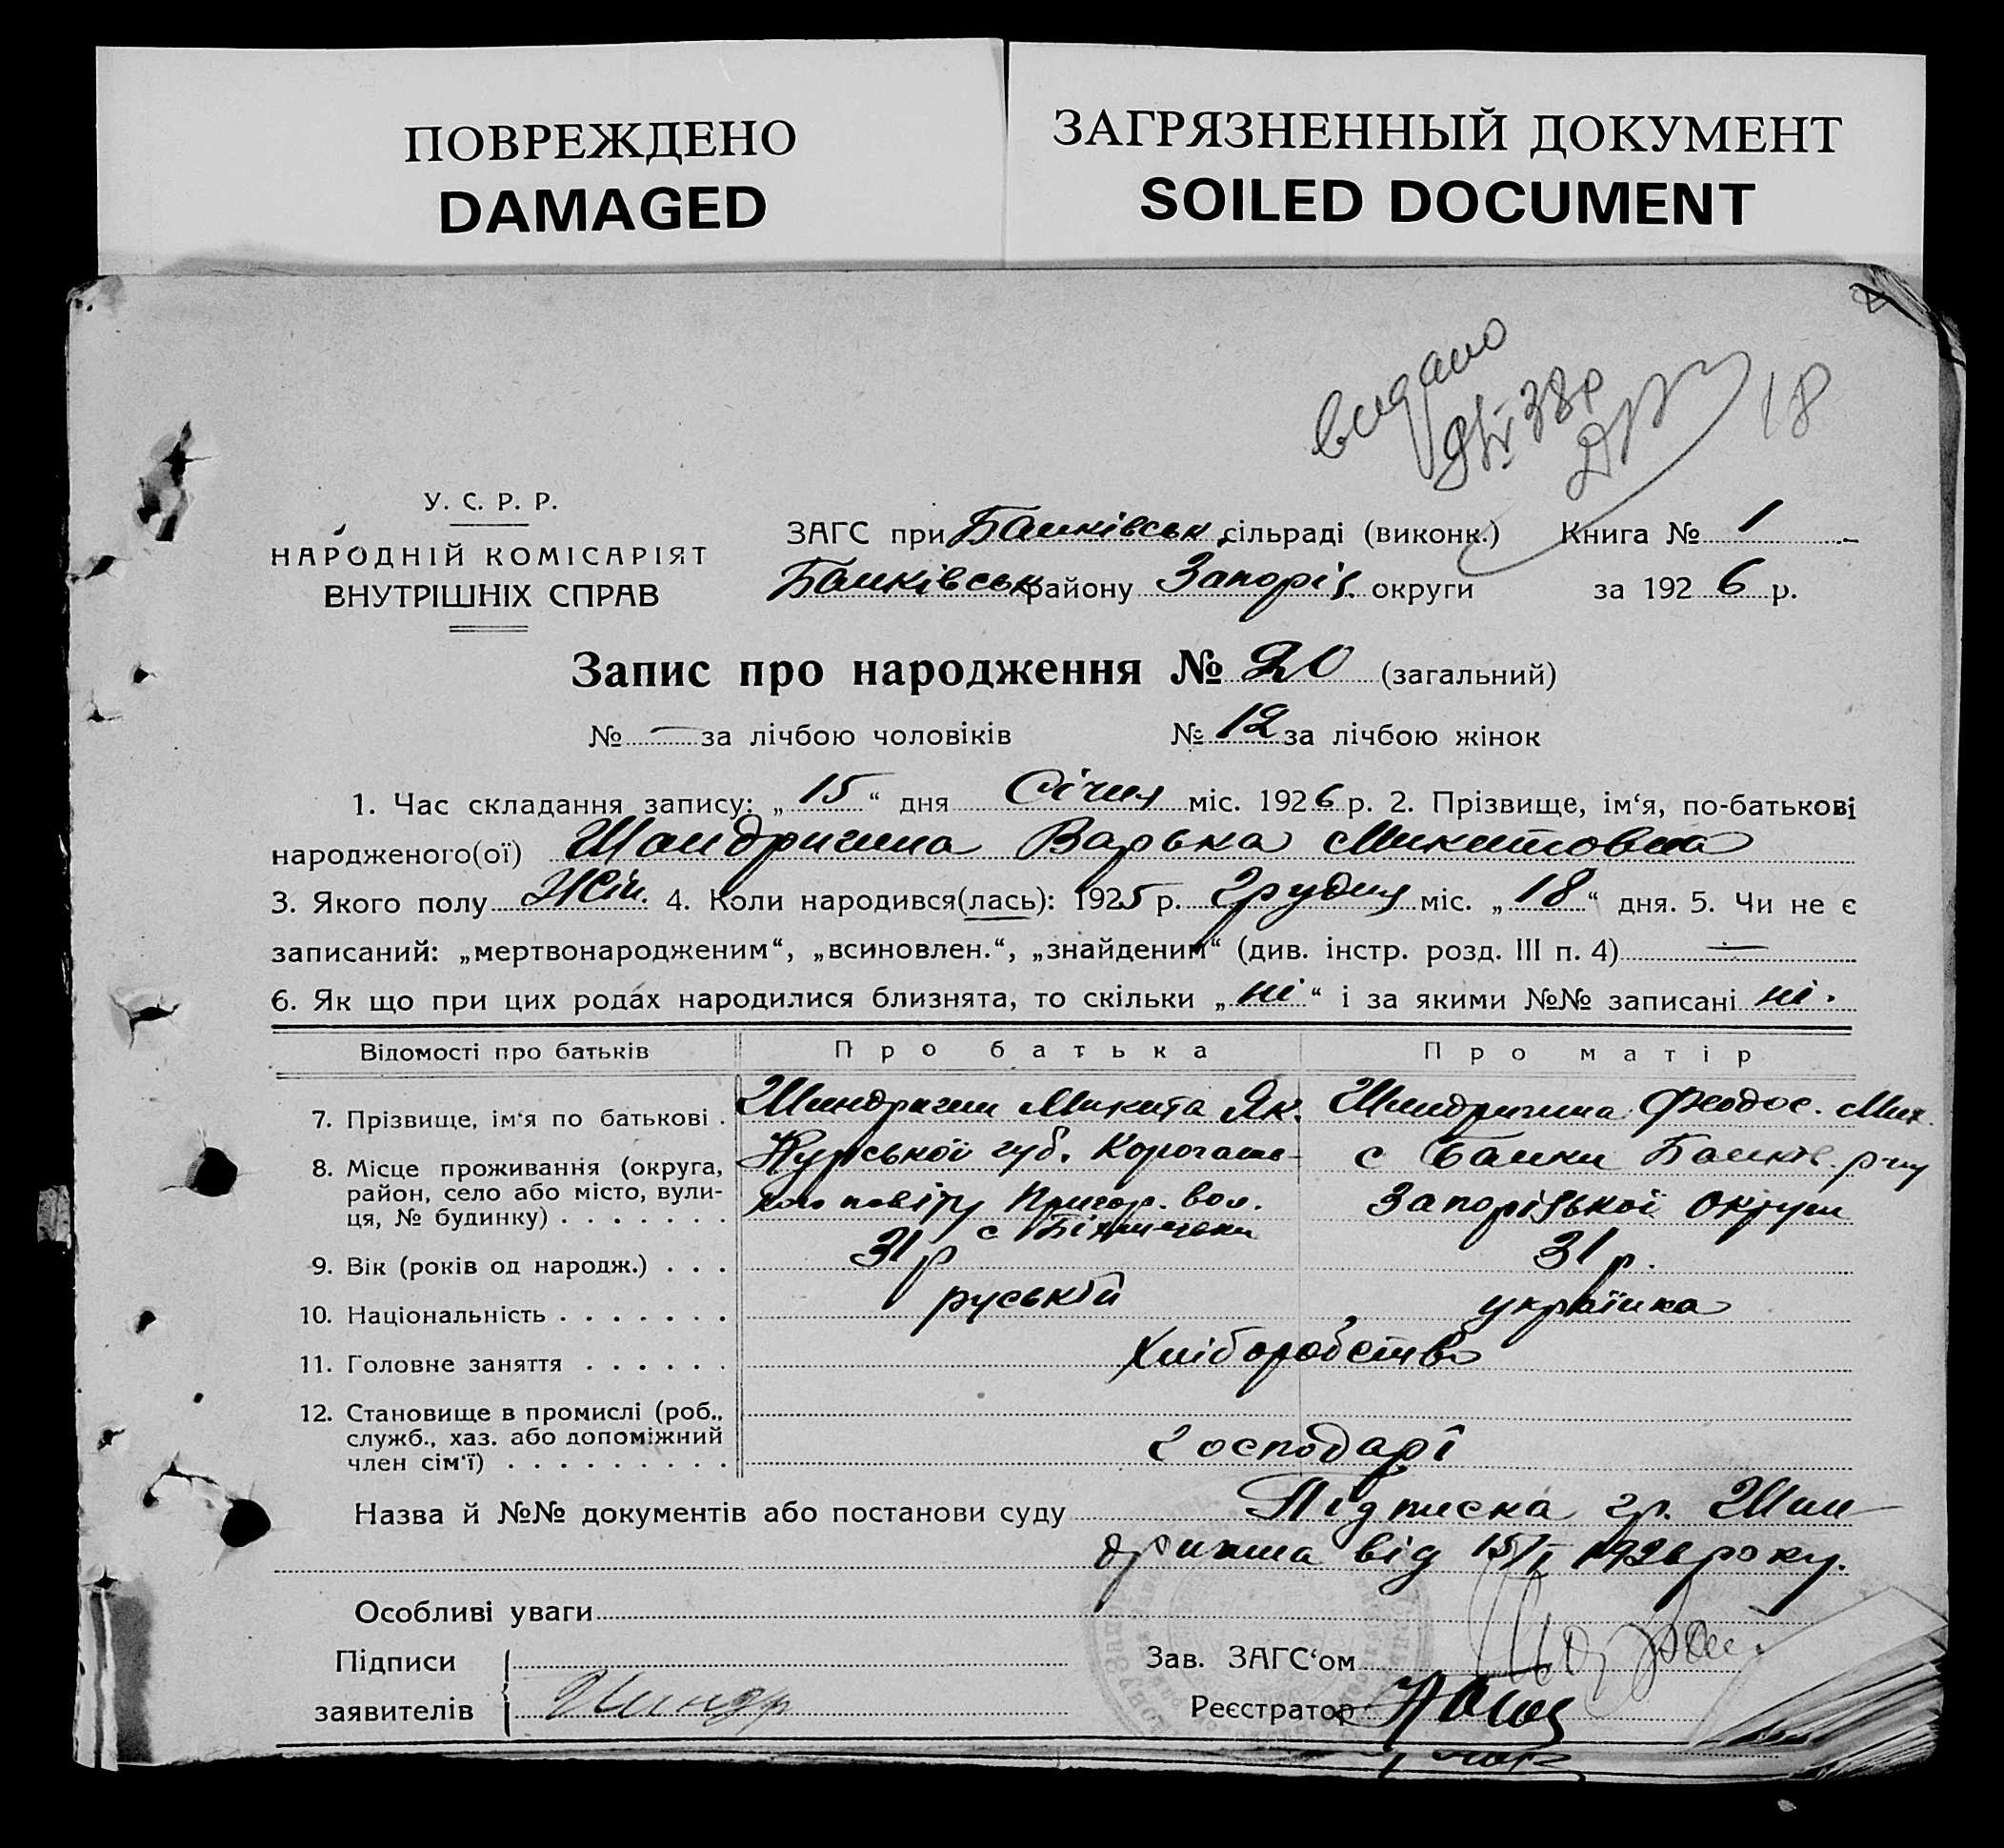 ПОВРЕЖДЕНО
DAMAGED
ЗАГРЯЗНЕННЫЙ ДОКУМЕНТ
SOILED DOCUMENT
видано
18
У. С. Р. Р.
НАРОДНІЙ КОМІСАРІЯТ
ВНУТРІШНІХ СПРАВ
ЗАГС при Балківськ. сільраді (виконк.) Книга № 1
Балківськ району Запоріз. округи за 1926 р.
Запис про народження № 20 (загальний)
№ — за лічбою чоловіків № 12 за лічбою жінок
1. Час складання запису: „15“ дня Січня міс. 1926 р. 2. Прізвище, ім‘я, по-батькові
народженого(ої) Шандригина Варька Микитовна
3. Якого полу Жін. 4. Коли народився(лась): 1925 р. Грудня міс. „18“ дня. 5. Чи не є
записаний: „мертвонародженим“, „всиновлен.“, „знайденим“ (див. інстр. розд. III п. 4) —
6. Як що при цих родах народилися близнята, то скільки „ні“ і за якими №№ записані ні.
Відомості про батьків Про батька Про матір
7. Прізвище, ім‘я по батькові . Шиндригин Микита Як. Шиндригина Феодос. Мих.
8. Місце проживання (округа, Курської губ. с Балки Балків. р-ну
район, село або місто, вули- повіту вол. Запорізької округи
ця, № будинку) . . . . . . . с
9. Вік (років од народж.) . . . 31 р 31 р.
10. Національність . . . . . . . руський українка
11. Головне заняття . . . . . . Хліборобство
12. Становище в промислі (роб.,
служб., хаз. або допоміжний
член сім‘ї) . . . . . . . . . Господарі
Назва й №№ документів або постанови суду Підписка гр. Шин-
дригина від 15/I 1926 року.
Особливі уваги
Підписи
заявителів Шиндр
Зав. ЗАГС‘ом
Реєстратор